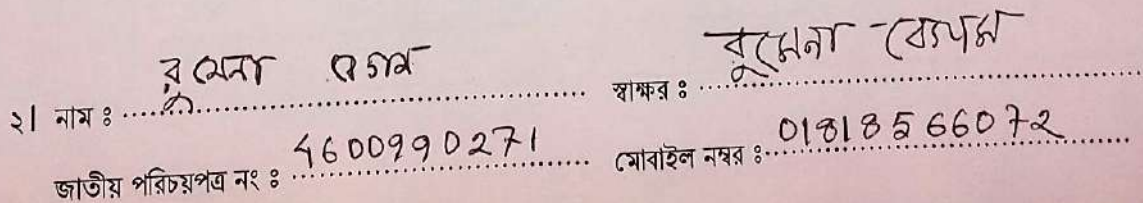 ২। নাম : রুমেনা বেগম স্বাক্ষর : রুমেনা বেগম
জাতীয় পরিচয়পত্র নং : 4600990271 মোবাইল নম্বর : 01818566072